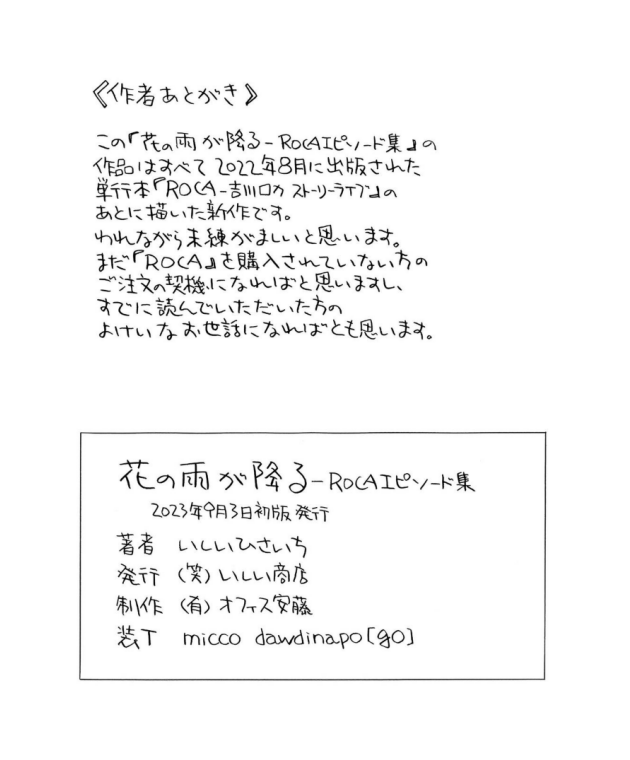 《作者あとがき》
この『花の雨が降る-ROCAエピソード集』の
作品はすべて2022年8月に出版された
単行本『ROCA-吉川ロカ ストーリーライブ』の
あとに描いた新作です。
われながら未練がましいと思います。
まだ『ROCA』を購入されていない方の
ご注文の契機になればと思いますし、
すでに読んでいただいた方の
よけいなお世話になればとも思います。
花の雨が降る-ROCAエピソード集
2023年9月3日初版発行
著者 いしいひさいち
発行 (笑)いしい商店
制作 (有)オフィス安藤
装丁 micco dawdinapo[go]